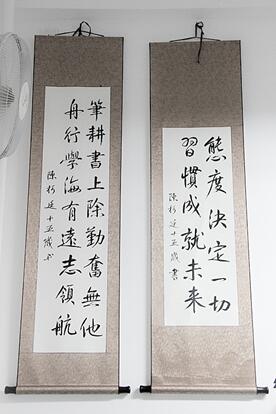 態度決定一切
習慣成就未來
陳彬廷十五歲書
筆耕書上除勤奮無他
舟行學海有遠志領航
陳彬廷十五歲書